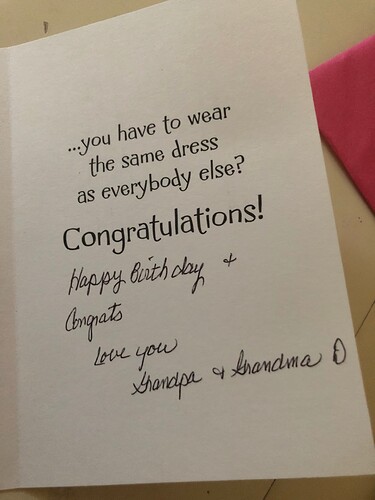 ...you have to wear
the same dress
as everybody else?
Congratulations!
Happy Birthday +
Congrats
Love you
Grandpa & Grandma D